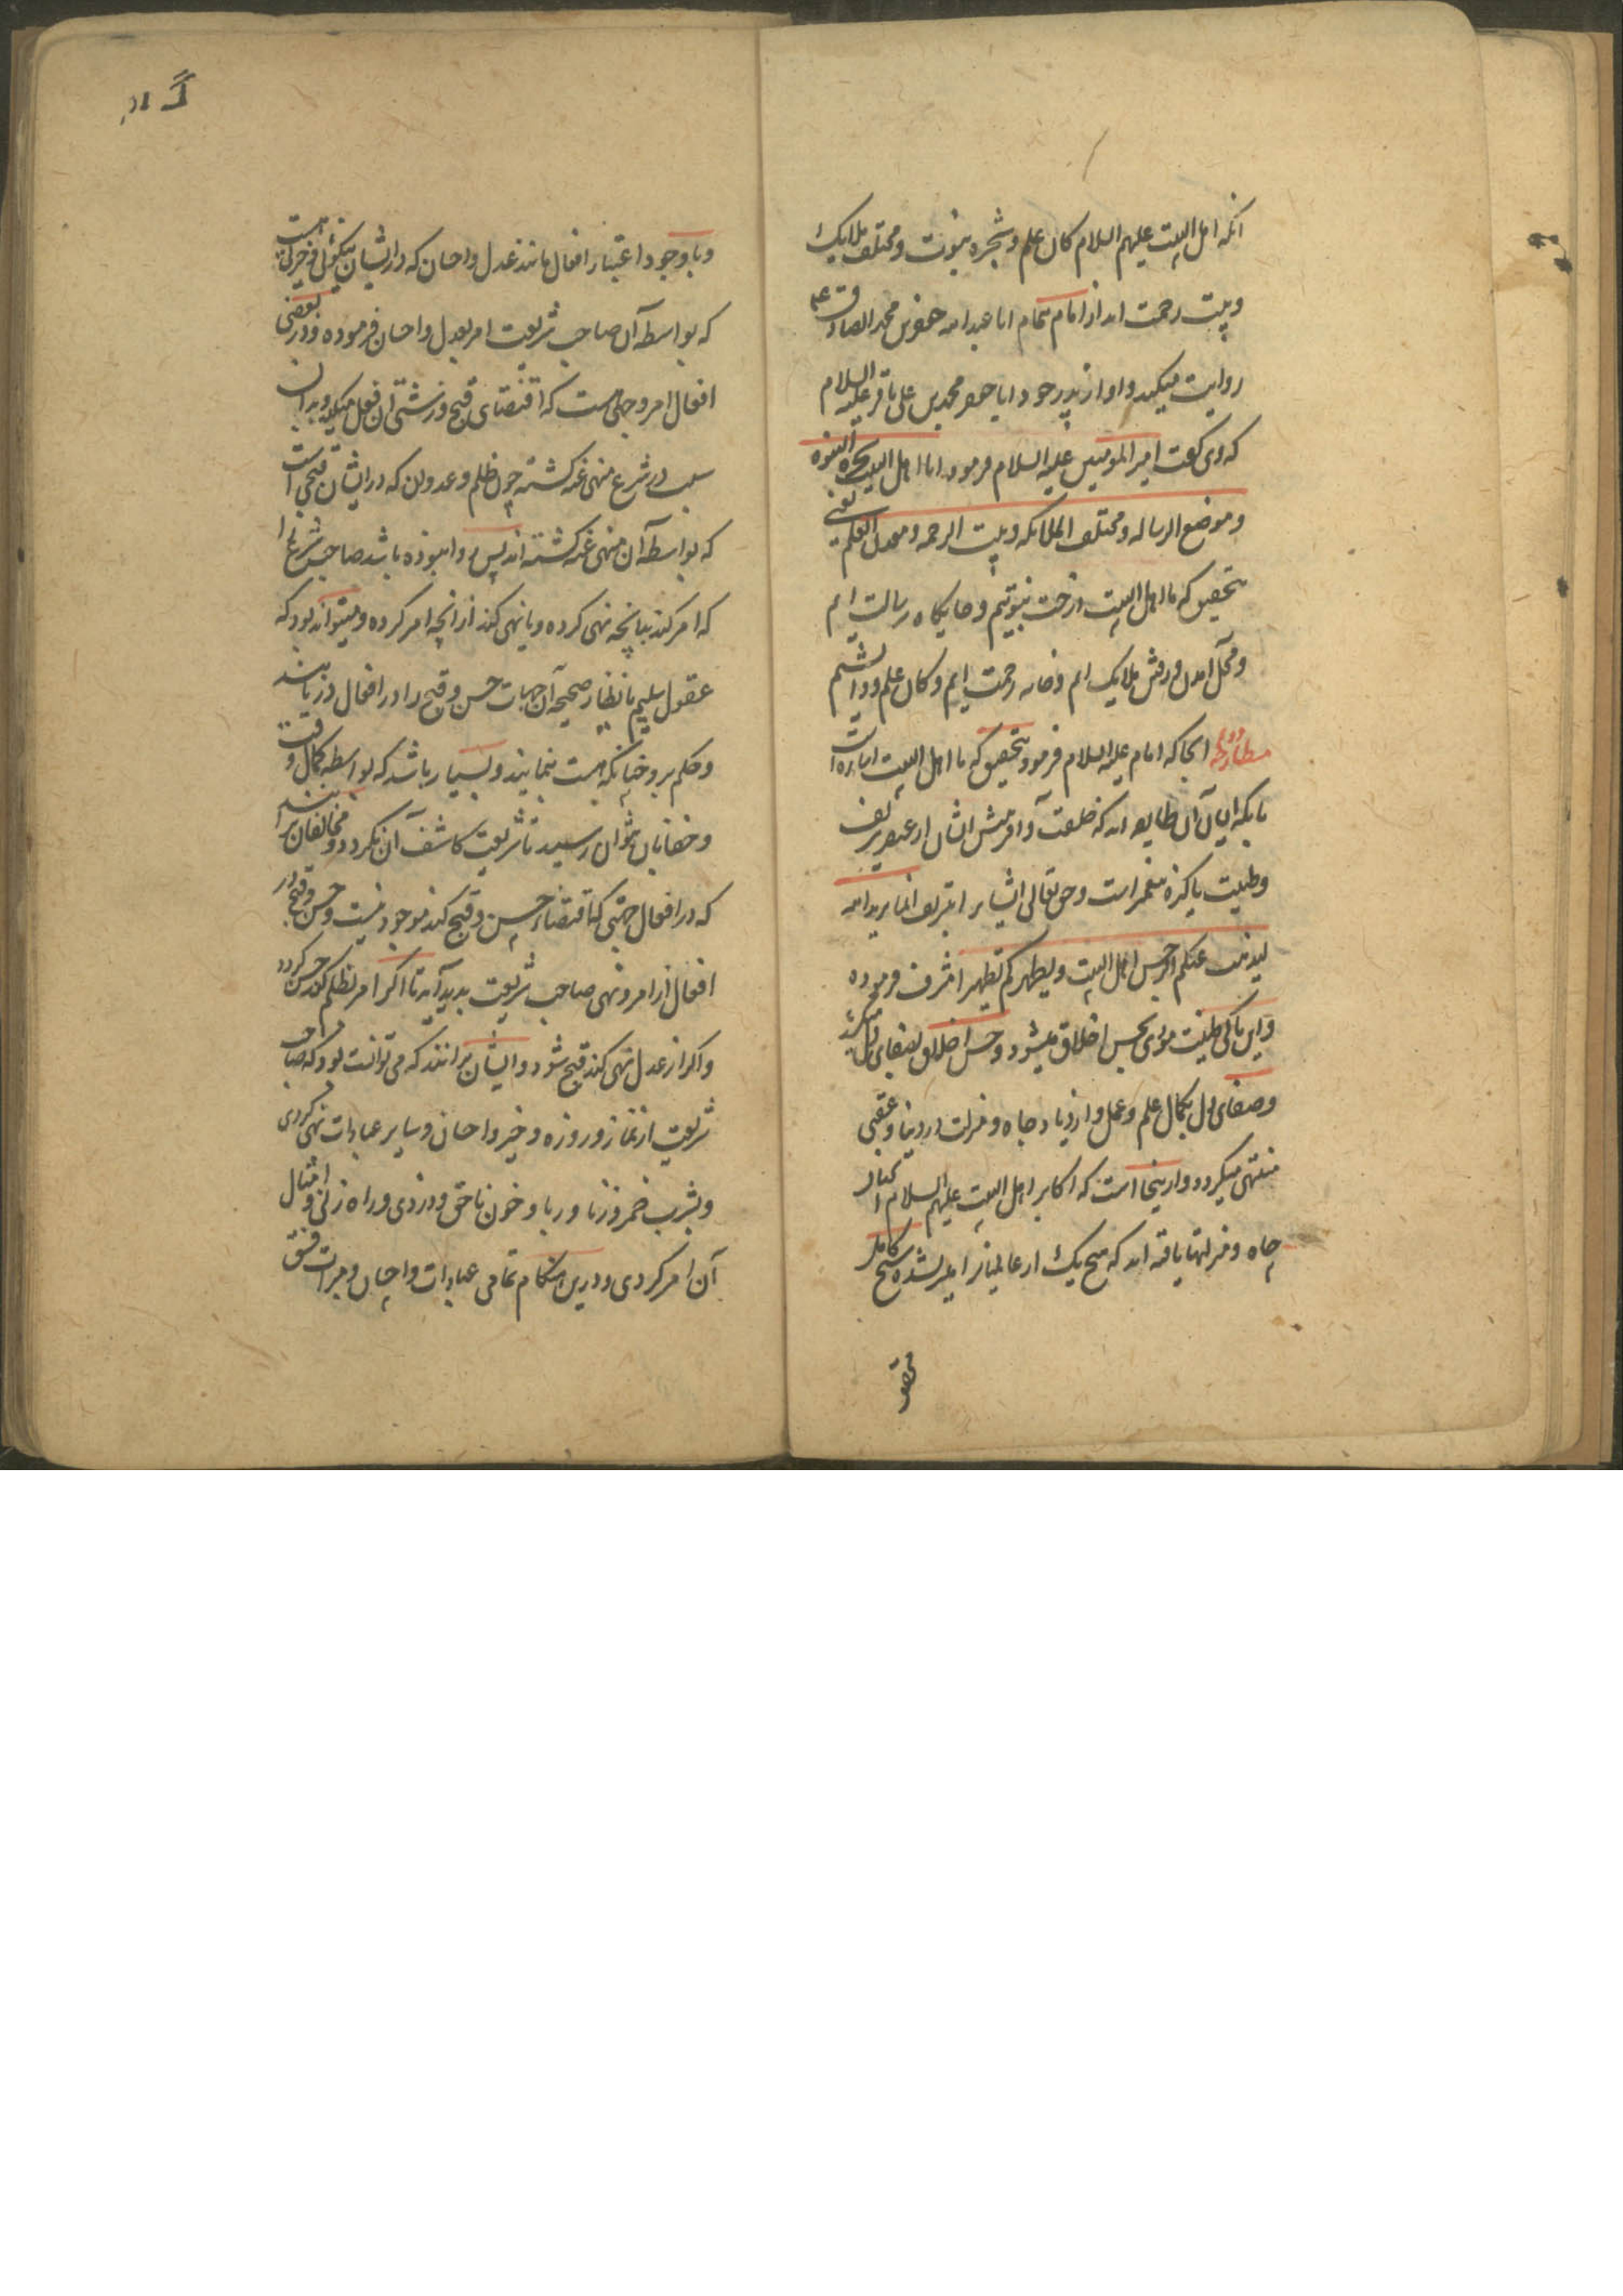 ائمه اهل البیت علیهم السلام کان علم و شجره نبوت و مختلف ملایک
و بیت رحمت اند از امام تمام ابا عبدالله جعفر بن محمد الصادق ع
روایت میکند و او از پدر خود ابا جعفر محمد بن علی باقر علیه السلام
که وی گفت امیر المومنین علیه السلام فرمود انا اهل البیت شجره النبوه
و موضع الرساله و مختلف الملائکه و بیت الرحمه و معدن العلم یعنی
بتحقیق که ما اهل البیت درخت نبوتیم و جایگاه رسالت ایم
و محل آمدن و رفتن ملایک ایم و خانه رحمت ایم و کان علم و دانشیم
مطارحه دوم انجا که امام علیه السلام فرمود بتحقیق که ما اهل البیت اشارت است
بانکه ایشان آن طایفه اند که خلقت و آفرینش ایشان از عنصر شریف
و طینت پاکیزه مخمر است و حق تعالی ایشان را بتشریف انما یرید الله
لیذهب عنکم الرجس اهل البیت و یطهرکم تطهیرا مشرف فرموده
و این پاکی طینت مودی بحسن اخلاق میشود و حسن اخلاق بصفای دل میکشد
و صفای دل بکمال علم و عمل و ازدیاد جاه و منزلت در دنیا و عقبی
منتهی میگردد و از ینجا است که اکابر اهل البیت علیهم السلام
جاه و منزلتها یافته اند که هیچ یک از عالمیان را میسر نشده شیخ کامل
محقق
و با وجود اعتبار افعال مانند عدل و احسان که در ایشان نیکوئی و خیریت است
که بواسطه آن صاحب شریعت امر بعدل و احسان فرموده و در بعضی
افعال امر و جهتی هست که اقتضای قبح و زشتی ان فعل میکند و بدان
سبب در شرع منهی عنه گشته چون ظلم و عدوان که در ایشان قبحی است
که بواسطه آن منهی عنه گشته اند پس روا نبوده باشد صاحب شرع را
که امر کند بانچه نهی کرده و یا نهی کند از انچه امر کرده و میتواند بود که
عقول سلیم بانظار صحیحه آن جهات حسن و قبح را در افعال در یابند
و حکم بر و چنانکه هست بنمایند و بسیار باشد که بواسطه کمال دقت
و خفا بان نتوان رسید تا شریعت کاشف آن نگردد و مخالفان برانند
که در افعال جهتی که اقتضاء حسن و قبح کند موجود نیست و حسن و قبح در
افعال از امر و نهی صاحب شریعت پدید آید تا اگر امر بظلم کند حسن گردد
و اگر از عدل نهی کند قبح شود و ایشان برانند که می توانست بود که صاحب
شریعت از نماز و روزه و خیر و احسان و سایر عبادات نهی کردی
و بشرب خمر و زنا و ربا و خون ناحق و دزدی و راه زنی و امثال
آن امر کردی و درین هنگام تمامی عبادات و احسان و مبرات فسق